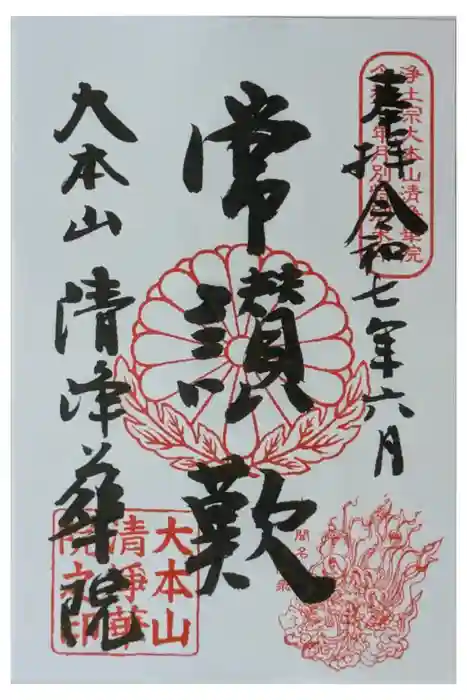 奉拝 令和七年六月
浄土宗大本山清浄華院
常讃歎
大本山 清浄華院
大本山
清淨華
院之印